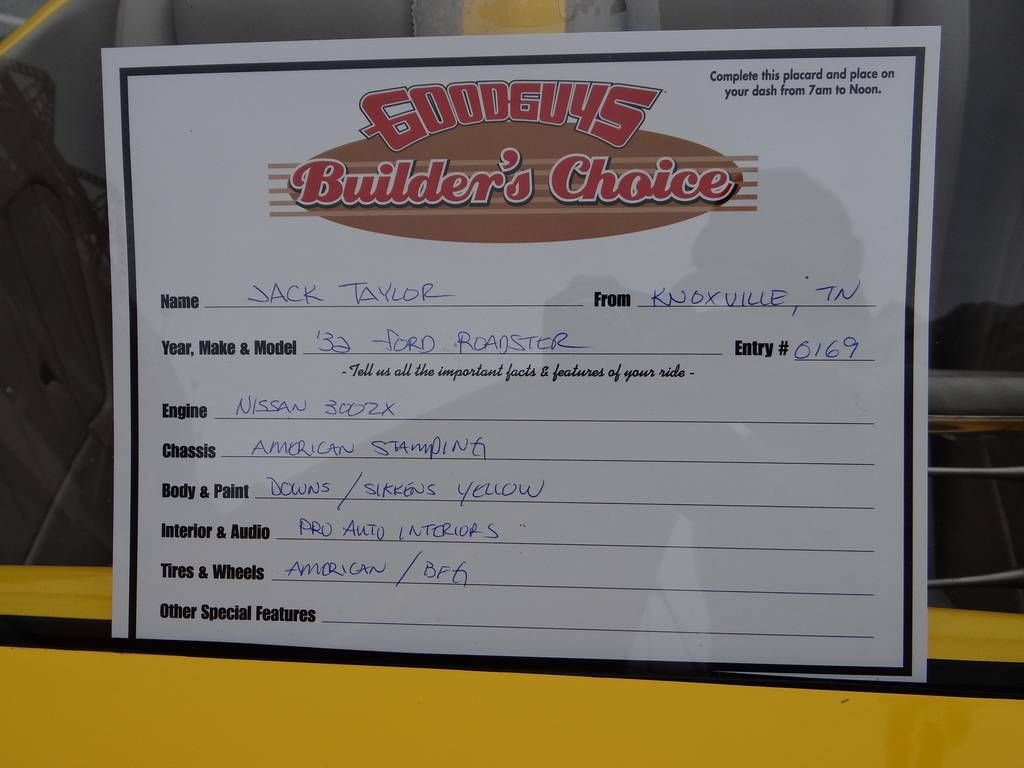 Complete this placard and place on
your dash from 7am to Noon.
GOODGUYS
Builder's Choice
Name JACK TAYLOR From KNOXVILLE, TN
Year, Make & Model '32 FORD ROADSTER Entry # 0169
- Tell us all the important facts & features of your ride -
Engine NISSAN 300ZX
Chassis AMERICAN STAMPING
Body & Paint DOWNS / SIKKENS YELLOW
Interior & Audio PRO AUTO INTERIORS
Tires & Wheels AMERICAN / BFG
Other Special Features